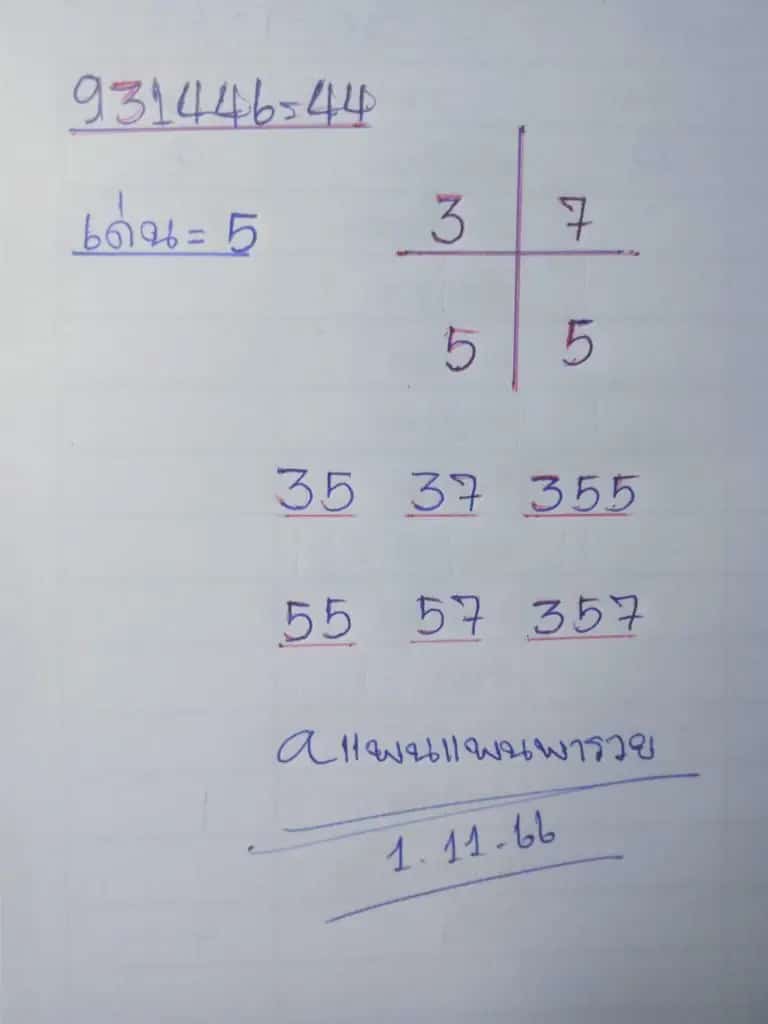 931446=44
เด่น= 5
3 7
5 5
35 37 355
55 57 357
aแพนแพนพารวย
1.11.66